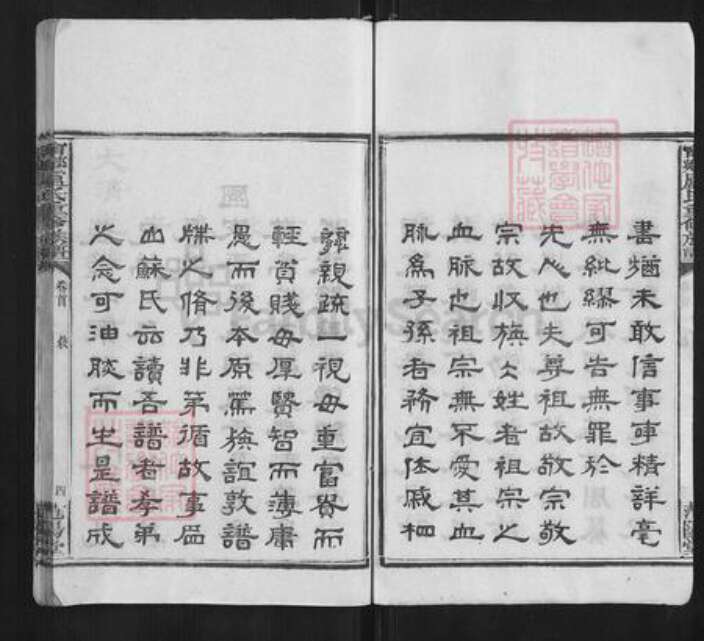 書猶未敢信事事精詳亳
無紕繆可告無罪於
先人也夫尊祖故敬宗敬
宗故收族族姓者祖宗之
血脉也祖宗無不愛其血
脉為子孫者務宜体戚
親疏一視毋重富貴而
輕貧賤毋厚賢智而薄庸
愚而後本原篤族誼敦譜
牒之脩乃非第循故事區區
也蘇氏云讀吾譜者孝弟
之念可油肰而生是譜成
卷首
四
FamilySearch